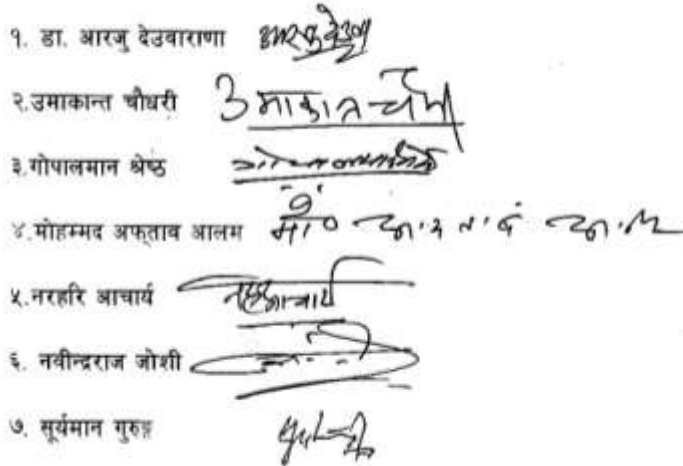 १. डा. आरजु देउवाराणा
२.उमाकान्त चौधरी उमाकान्त चौधरी
३.गोपालमान श्रेष्ठ
४.मोहम्मद अफ्ताव आलम
५.नरहरि आचार्य नरहरि आचार्य
६. नवीन्द्रराज जोशी
७. सूर्यमान गुरुङ्ग